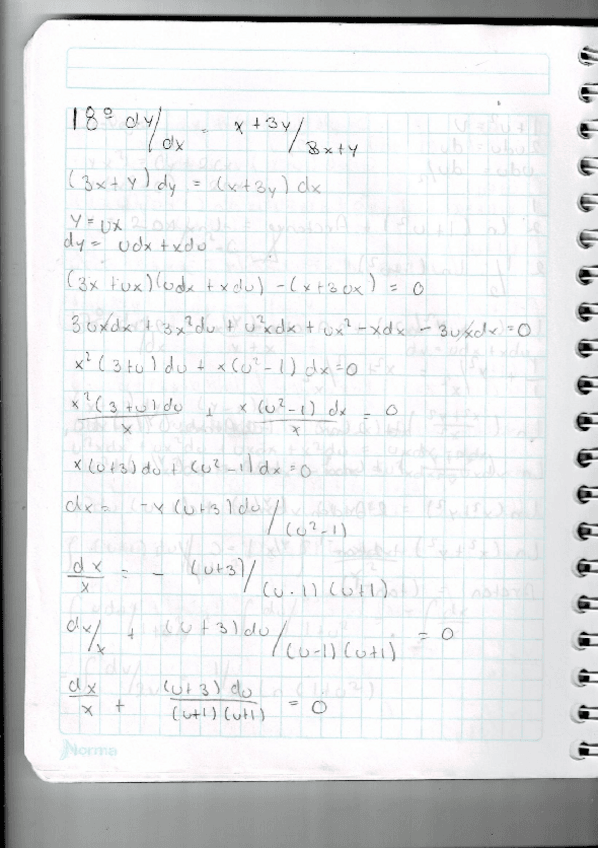 18° dy/dx = x + 3y/3x+y
(3x+y) dy = (x+3y) dx
y = ux
dy = udx + xdu
(3x + ux)(udx + xdu) - (x+3ux) = 0
3uxdx + 3x²du + u²xdx + ux² - xdx - 3uxdx = 0
x²(3+u) du + x(u²-1) dx = 0
x²(3+u) du/x + x(u²-1) dx/x = 0
x(u+3)du + (u²-1)dx = 0
dx = -x(u+3)du/(u²-1)
dx/x = - (u+3)/(u-1)(u+1)
dx/x + (u+3)du/(u-1)(u+1) = 0
dx/x + (u+3) du/(u+1)(u+1) = 0
Norma